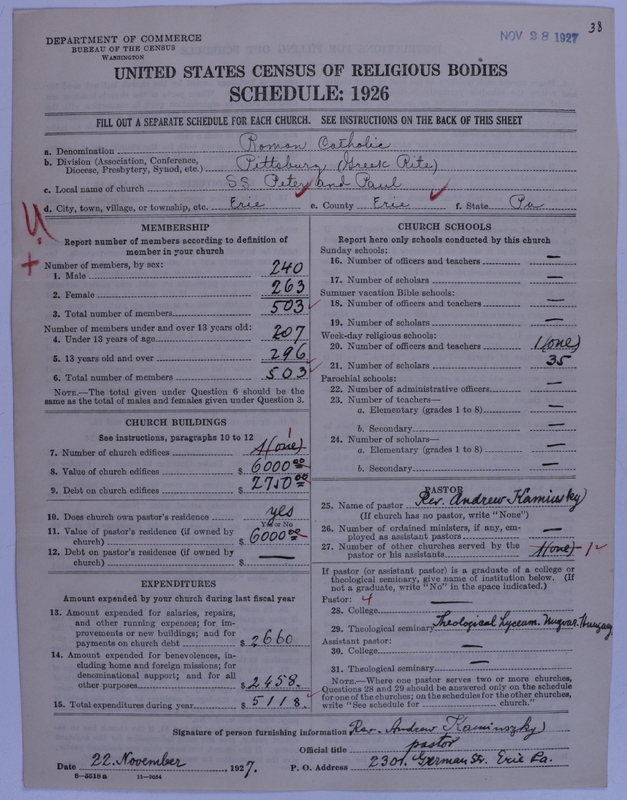 38
DEPARTMENT OF COMMERCE
BUREAU OF THE CENSUS
WASHINGTON
NOV 28 1927
UNITED STATES CENSUS OF RELIGIOUS BODIES
SCHEDULE: 1926
FILL OUT A SEPARATE SCHEDULE FOR EACH CHURCH. SEE INSTRUCTIONS ON THE BACK OF THIS SHEET
a. Denomination Roman Catholic
b. Division (Association, Conference, Diocese, Presbytery, Synod, etc.) Pittsburg (Greek Rite)
c. Local name of church SS. Peter and Paul
d. City, town, village, or township, etc. Erie e. County Erie f. State Pa
MEMBERSHIP
Report number of members according to definition of
member in your church
Number of members, by sex:
1. Male 240
2. Female 263
3. Total number of members 503
Number of members under and over 13 years old:
4. Under 13 years of age 207
5. 13 years old and over 296
6. Total number of members 503
NOTE.—The total given under Question 6 should be
same as the total of males and females given under Question 3.
CHURCH BUILDINGS
See instructions, paragraphs 10 to 12
7. Number of church edifices 1 (one) 1
8. Value of church edifices $ 6000 00
9. Debt on church edifices $ 2750 00
10. Does church own pastor's residence yes
Yes or No
11. Value of pastor's residence (if owned by
church) $ 6000 00
12. Debt on pastor's residence (if owned by
church) $ —
EXPENDITURES
Amount expended by your church during last fiscal year
13. Amount expended for salaries, repairs,
and other running expenses; for im-
provements or new buildings; and for
payments on church debt $ 2660
14. Amount expended for benevolences, in-
cluding home and foreign missions; for
denominational support; and for all
other purposes $ 2458.
15. Total expenditures during year $ 5118.
CHURCH SCHOOLS
Report here only schools conducted by this church
Sunday schools:
16. Number of officers and teachers —
17. Number of scholars —
Summer vacation Bible schools:
18. Number of officers and teachers —
19. Number of scholars —
Week-day religious schools:
20. Number of officers and teachers 1 (one)
21. Number of scholars 35
Parochial schools:
22. Number of administrative officers —
23. Number of teachers—
a. Elementary (grades 1 to 8) —
b. Secondary —
24. Number of scholars—
a. Elementary (grades 1 to 8) —
b. Secondary —
PASTOR
25. Name of pastor Rev. Andrew Kaminszky
(If church has no pastor, write "None")
26. Number of ordained ministers, if any, em-
ployed as assistant pastors —
27. Number of other churches served by the
pastor or his assistants 1 (one)
If pastor (or assistant pastor) is a graduate of a college or
theological seminary, give name of institution below. (If
not a graduate, write "No" in the space indicated.)
Pastor: 4
28. College —
29. Theological seminary Theological Lyceum. Ungvar. Hungary
Assistant pastor:
30. College —
31. Theological seminary —
NOTE.—Where one pastor serves two or more churches,
Questions 28 and 29 should be answered only on the schedule
for one of the churches; on the schedules for the other churches,
write "See schedule for church."
Signature of person furnishing information Rev. Andrew Kaminszky
Official title pastor
Date 22. November, 1927. P. O. Address 2301. German Str. Erie Pa.
8—5518a 11—9034